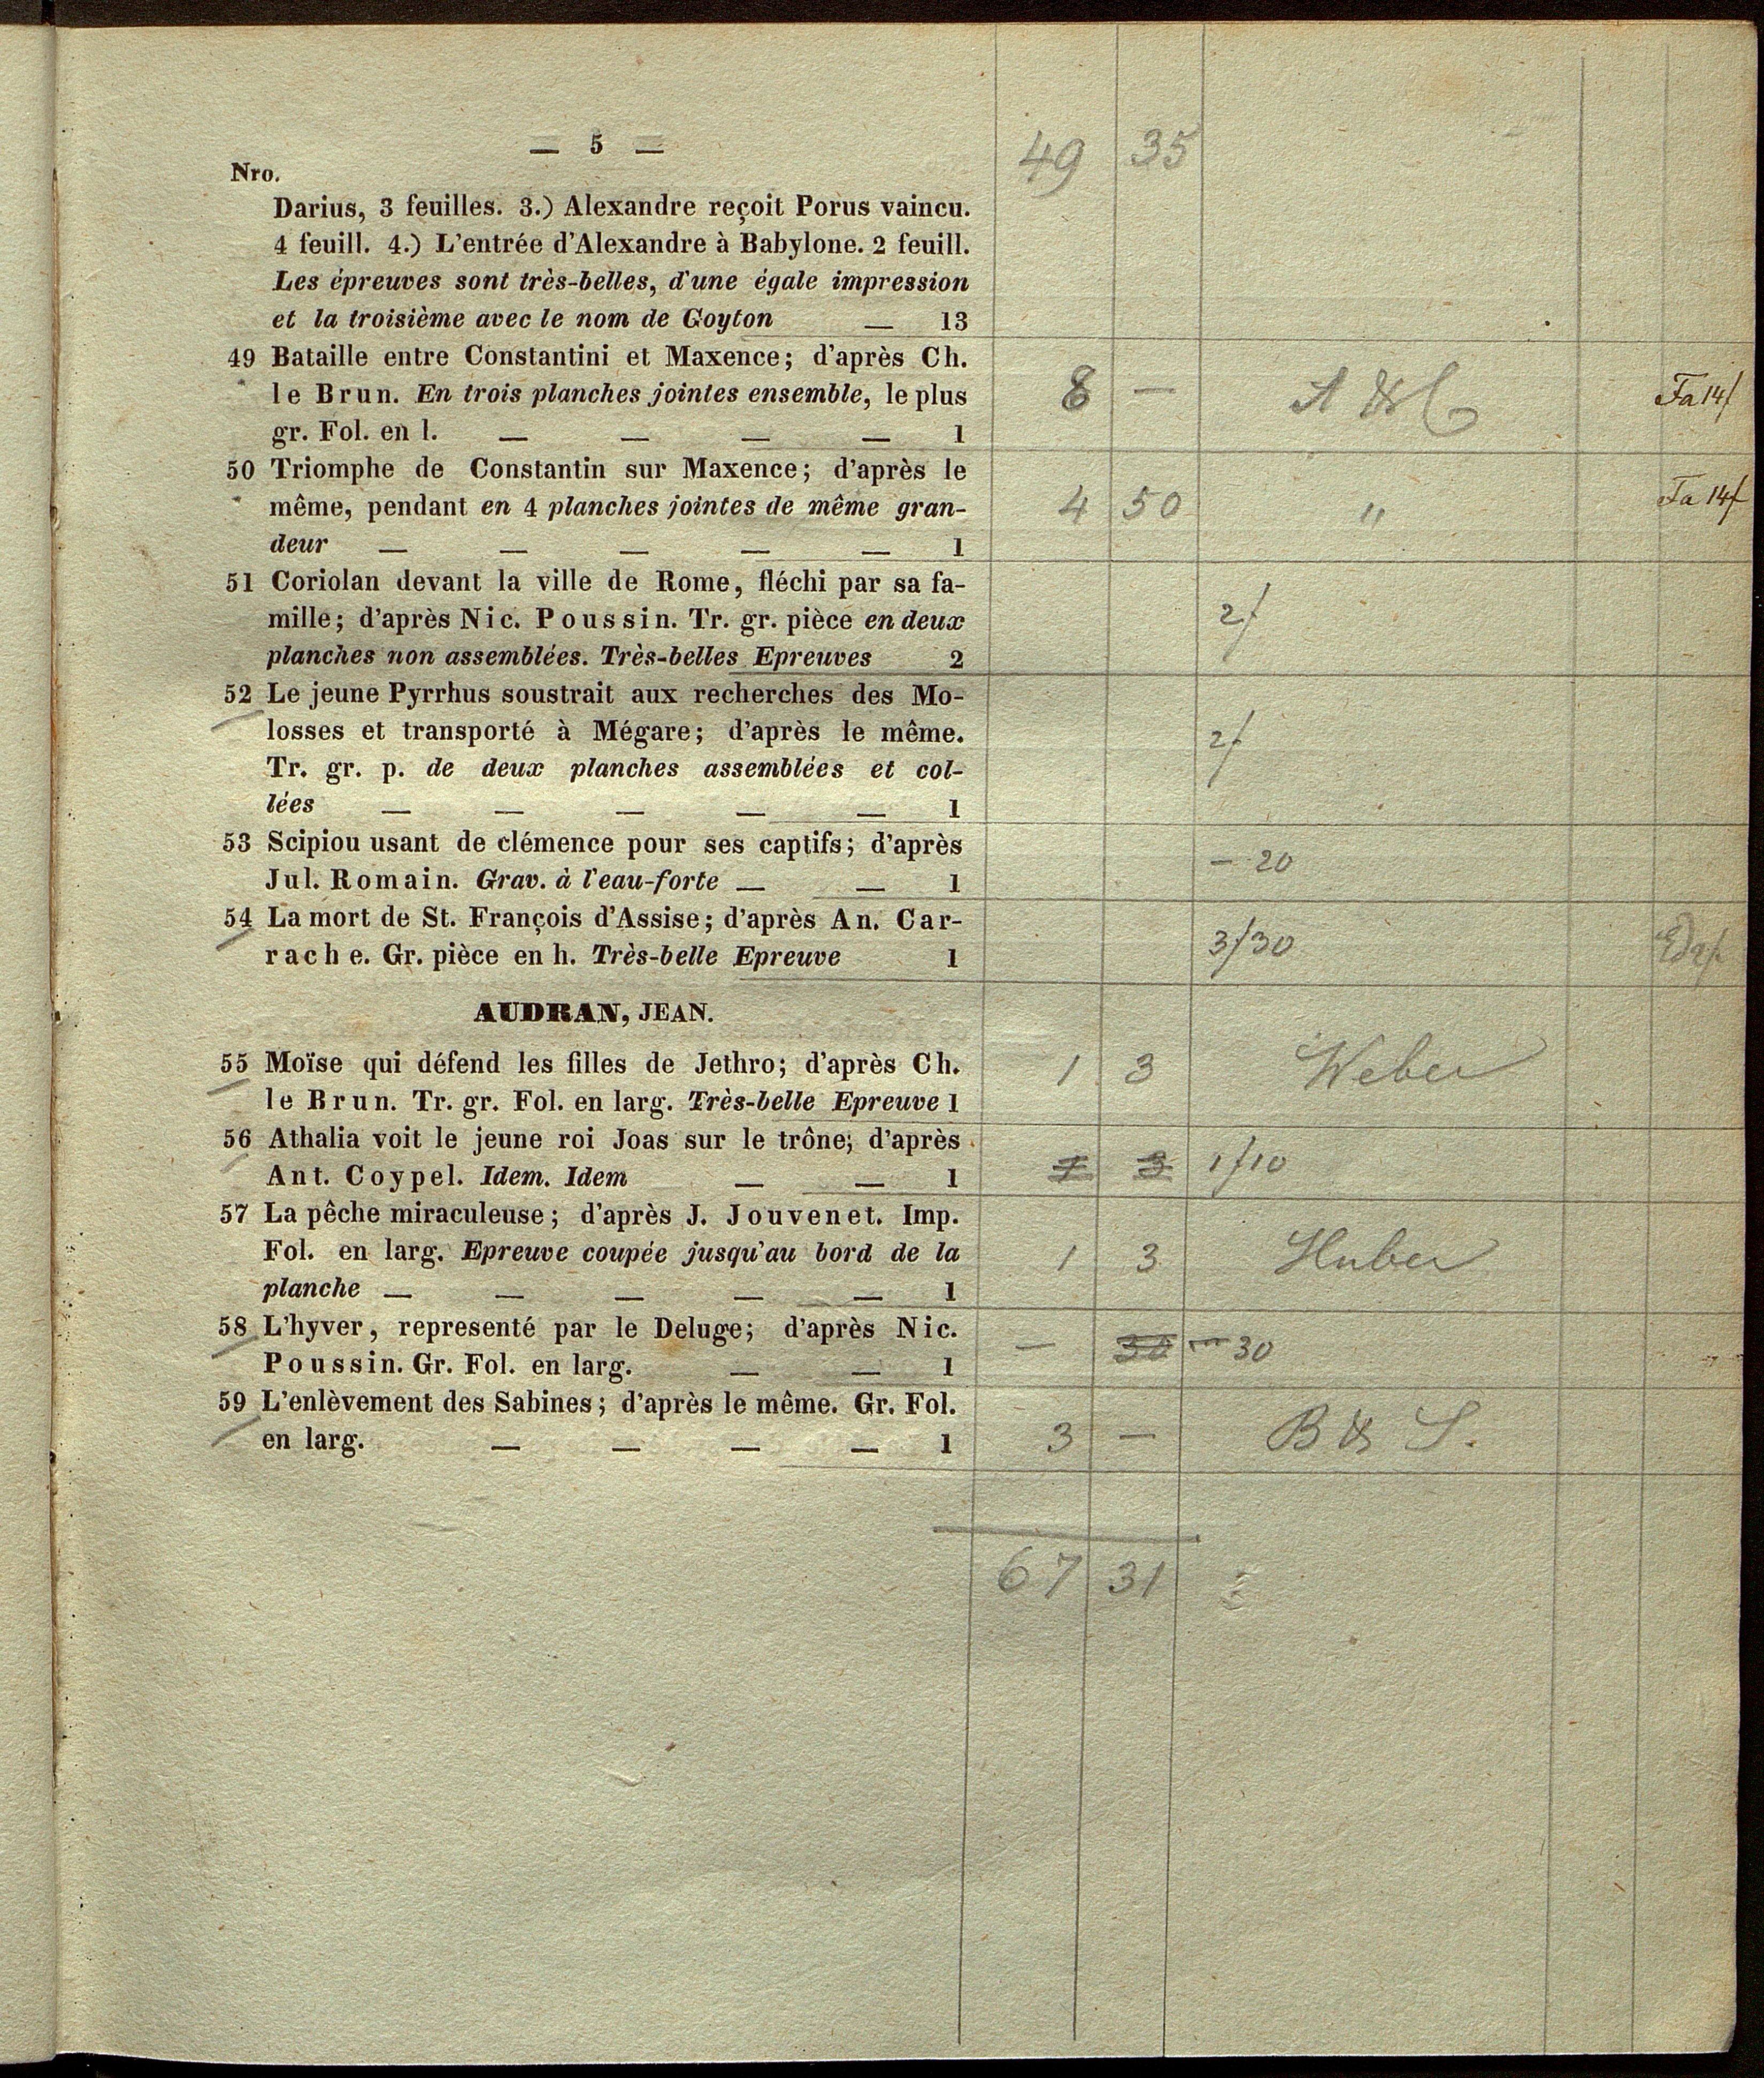 — 5 — 49 35
Nro.
Darius, 3 feuilles. 3.) Alexandre reçoit Porus vaincu.
4 feuill. 4.) L'entrée d'Alexandre à Babylone. 2 feuill.
Les épreuves sont très-belles, d'une égale impression
et la troisième avec le nom de Goyton — 13
49 Bataille entre Constantini et Maxence; d'après Ch.
le Brun. En trois planches jointes ensemble, le plus 8 — A & C Fa 14f
gr. Fol. en l. — — — — 1
50 Triomphe de Constantin sur Maxence; d'après le
même, pendant en 4 planches jointes de même gran- 4 50 " Fa 14f
deur — — — — — 1
51 Coriolan devant la ville de Rome, fléchi par sa fa-
mille; d'après Nic. Poussin. Tr. gr. pièce en deux 2f
planches non assemblées. Très-belles Epreuves 2
52 Le jeune Pyrrhus soustrait aux recherches des Mo-
losses et transporté à Mégare; d'après le même. 2f
Tr. gr. p. de deux planches assemblées et col-
lées — — — — — 1
53 Scipiou usant de clémence pour ses captifs; d'après — 20
Jul. Romain. Grav. à l'eau-forte — — 1
54 La mort de St. François d'Assise; d'après An. Car-
rache. Gr. pièce en h. Très-belle Epreuve 1 3f30
AUDRAN, JEAN.
55 Moïse qui défend les filles de Jethro; d'après Ch. 1 3 Weber
le Brun. Tr. gr. Fol. en larg. Très-belle Epreuve 1
56 Athalia voit le jeune roi Joas sur le trône; d'après
Ant. Coypel. Idem. Idem — — 1 1 3 1f10
57 La pêche miraculeuse; d'après J. Jouvenet. Imp.
Fol. en larg. Epreuve coupée jusqu'au bord de la 1 3 Huber
planche — — — — — 1
58 L'hyver, representé par le Deluge; d'après Nic.
Poussin. Gr. Fol. en larg. — — 1 — 30 — 30
59 L'enlèvement des Sabines; d'après le même. Gr. Fol.
en larg. — — — — 1 3 — B & S.
67 31